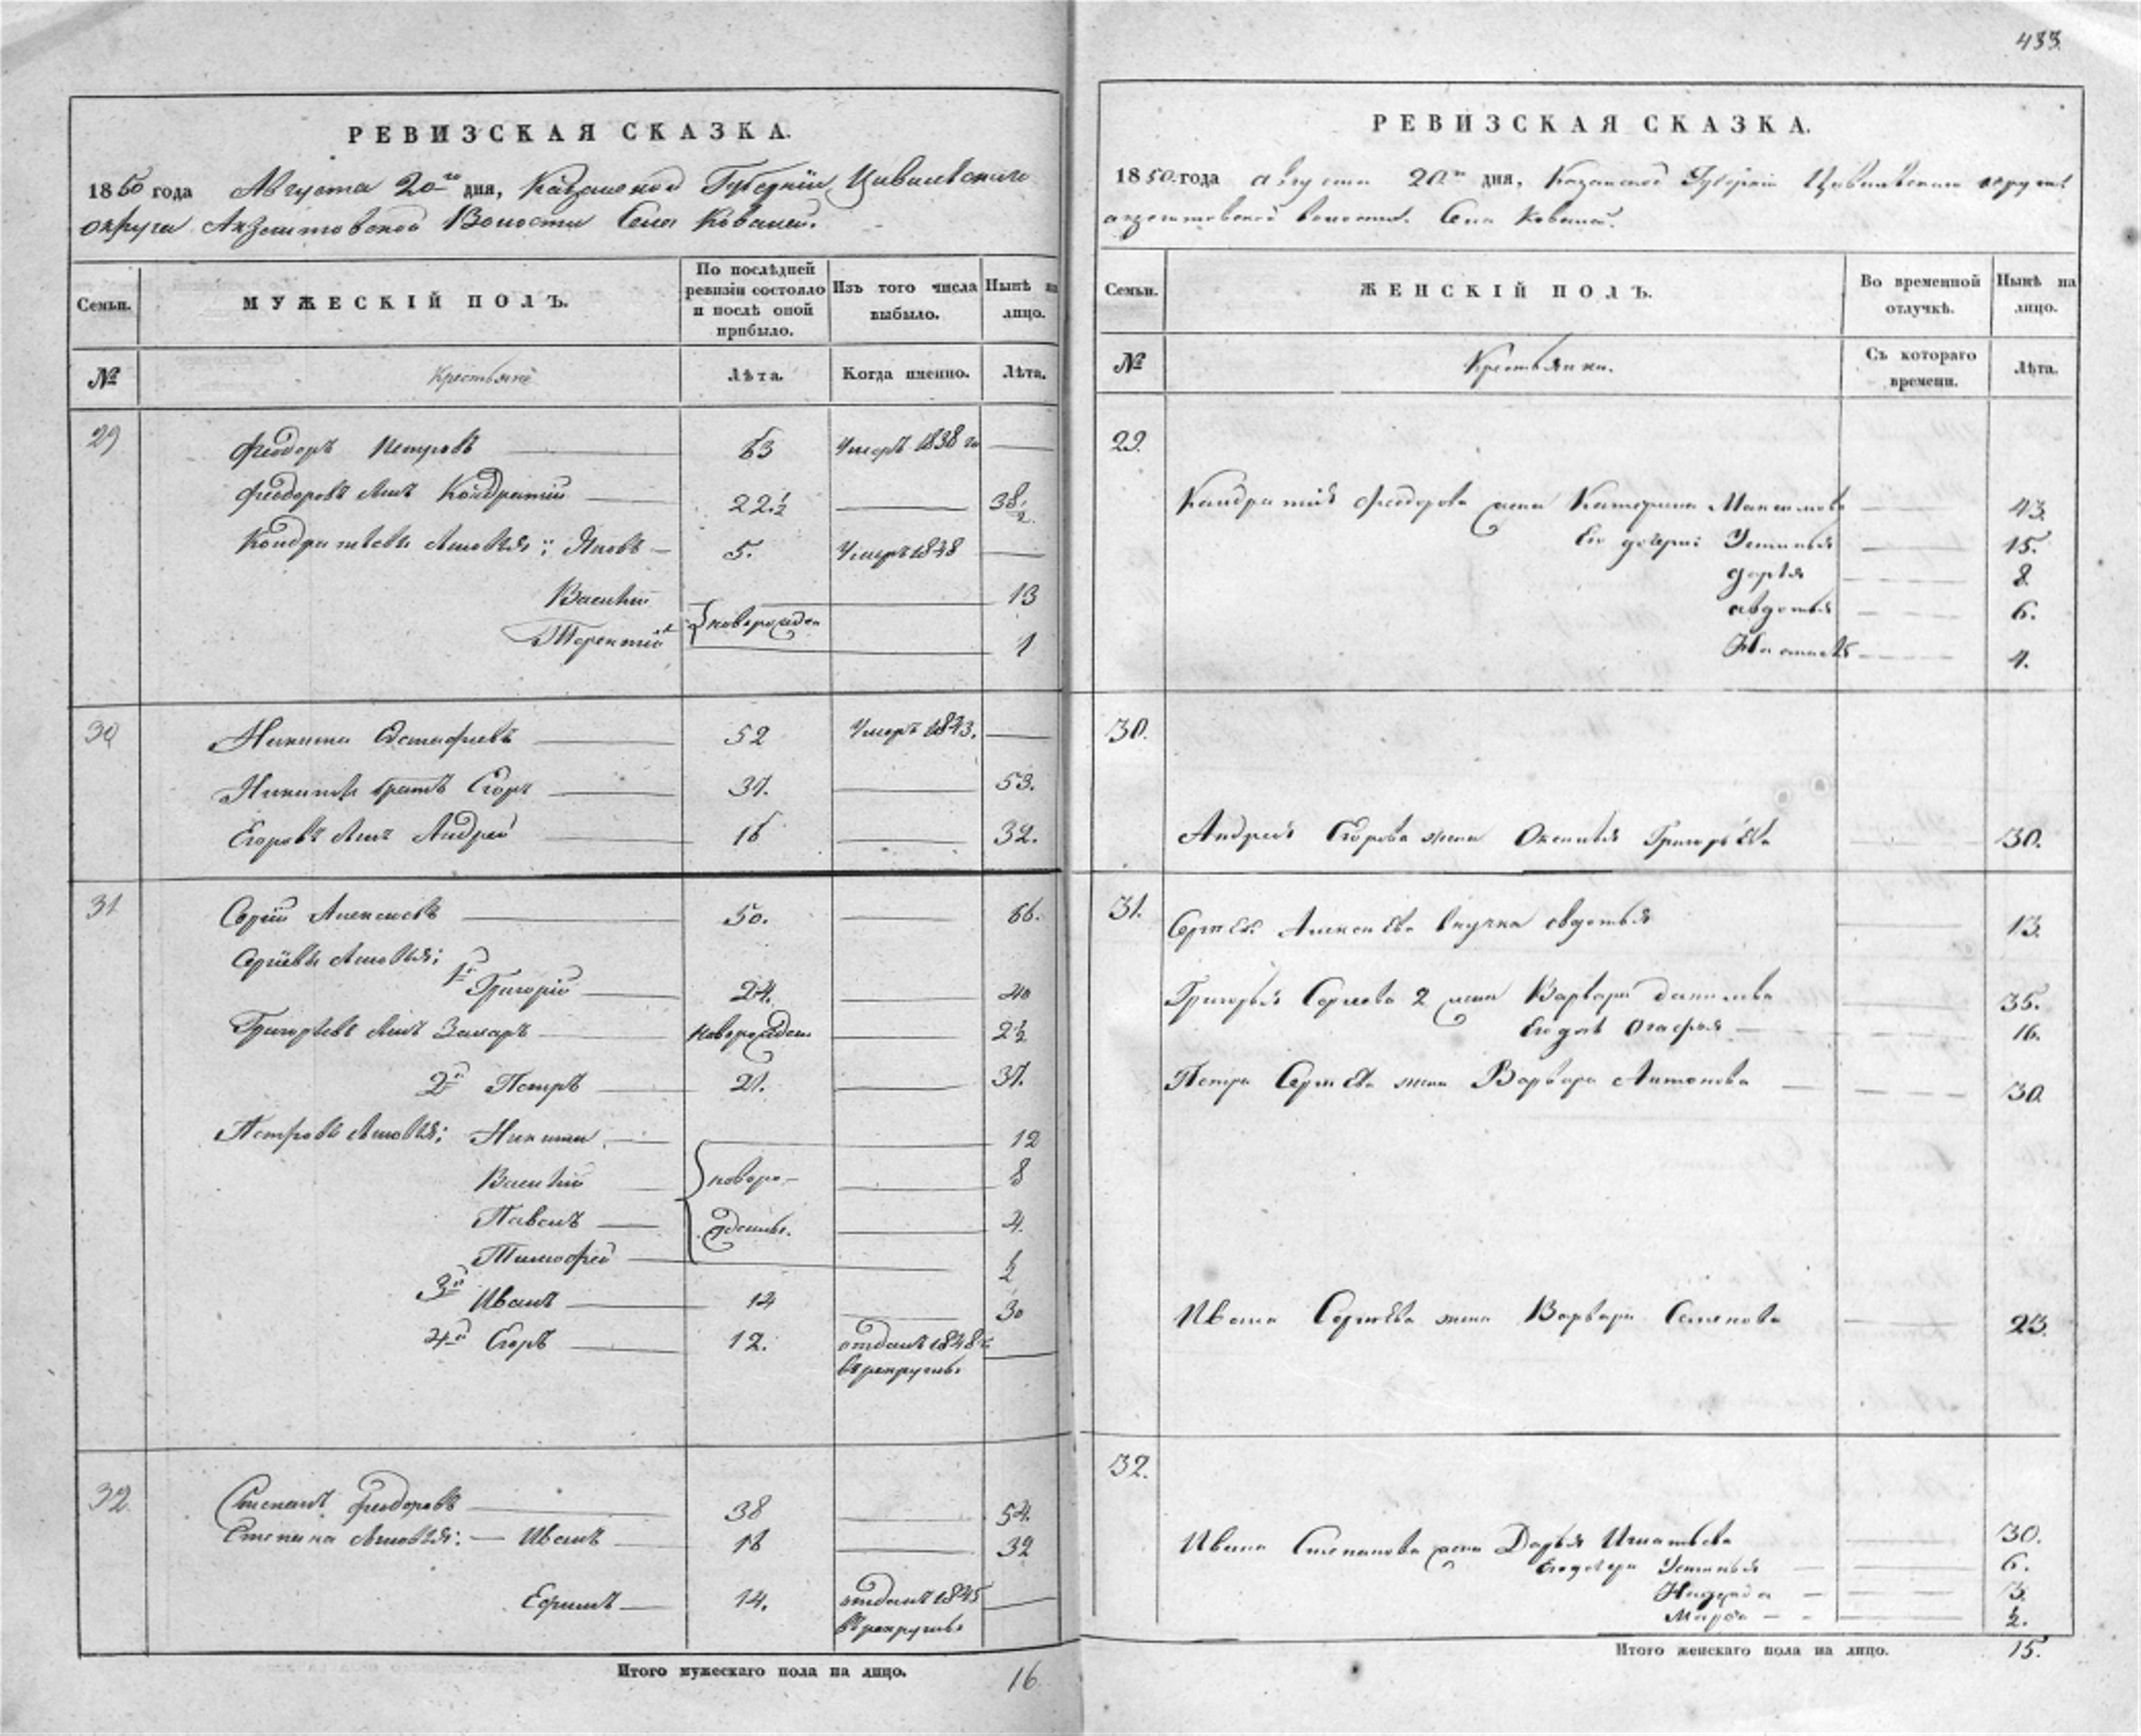 433.
РЕВИЗСКАЯ СКАЗКА.
1850 года Августа 20го дня, Казанской Губерніи, Цивильскаго
округа Акзегитовской Волости Села Ковалей.
Семьи.
МУЖЕСКІЙ ПОЛЪ.
По послѣдней ревизіи состояло и послѣ оной прибыло.
Изъ того числа выбыло.
Нынѣ на лицо.
№ Крестьяне Лѣта. Когда именно. Лѣта.
29
Феодоръ Петровъ 63 Умеръ 1838 го
Феодоровъ сынъ Кондратій 22 1/2 38 1/2
Кондратьевы сыновья: Яковъ 5. Умеръ 1848
Василій 13
новорожден
Терентій 1
30
Никита Остафьевъ 52 Умеръ 1843.
Никиты братъ Егоръ 37. 53.
Егоровъ сынъ Андрей 16 32.
31
Сергій Алексѣевъ 50. 66.
Сергіевы сыновья:
1й Григорій 24. 40
Григорьевъ сынъ Захаръ новорожден. 2 1/2
2й Петръ 21. 37.
Петровы сыновья: Никита 12
Василій новоро- 8
Павелъ жденны. 4.
Тимофей 1/2
3й Иванъ 14 30
4й Егоръ 12. отданъ 1848 г.
въ рекруты.
32.
Степанъ Феодоровъ 38 54.
Степана сыновья: Иванъ 16 32
Ефимъ 14. отданъ 1845
въ рекруты
Итого мужескаго пола на лицо. 16
РЕВИЗСКАЯ СКАЗКА.
1850 года августа 20го дня, Казанской Губерніи Цивильскаго округа
акзегитовской волости. Села Ковалей.
Семьи.
ЖЕНСКІЙ ПОЛЪ.
Во временной отлучкѣ.
Нынѣ на лицо.
№ Крестьянки. Съ котораго времени. Лѣта.
29.
Кандратія Феодорова жена Катерина Максимова 43.
Его дочери: Устинья 15.
дарья 8.
авдотья 6.
Настасья 4.
30.
Андрея Егорова жена Оксинья Григорьева 30.
31.
Сергѣя Алексѣева внучка овдотья 13.
Григорья Сергеева 2 жена Варвара данилова 35.
Его дочь Огафья 16.
Петра Сергѣева жена Варвара Антонова 30.
Ивана Сергѣева жена Варвара Семенова 23.
32.
Ивана Степанова жена Дарья Игнатьева 30.
Его дочери Устинья 6.
Надежда 3.
Марфа 1/2.
Итого женскаго пола на лицо. 15.